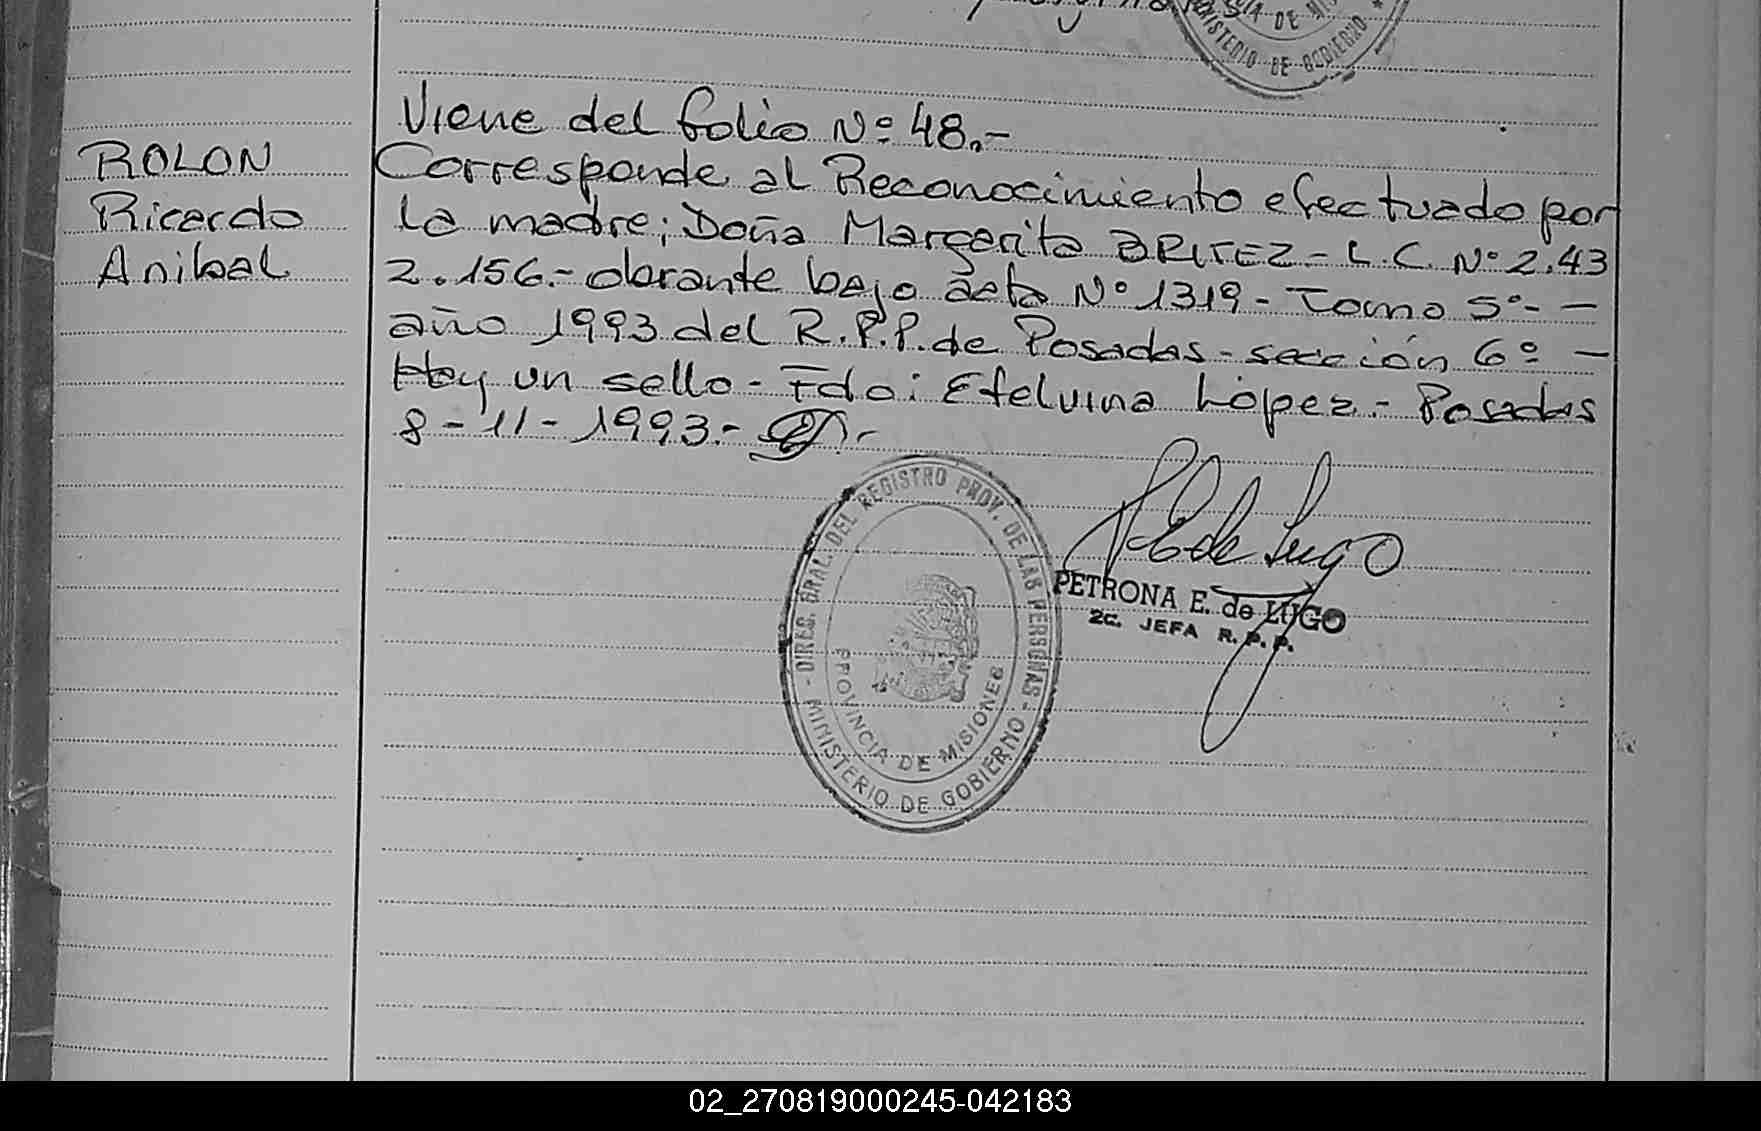 MINISTERIO DE GOBIERNO
Viene del folio Nº 48.-
ROLON
Ricardo
Anibal
Corresponde al Reconocimiento efectuado por
la madre; Doña Margarita BRITEZ - L.C. Nº 2.43
2.156.- obrante bajo acta Nº 1319 - Tomo 5º - -
año 1993 del R.P.P. de Posadas - sección 6º -
Hay un sello - Fdo: Etelvina López.- Posadas
8 - 11 - 1993.-
DIRES. GRAL. DEL REGISTRO PROV. DE LAS PERSONAS -
PROVINCIA DE MISIONES
- MINISTERIO DE GOBIERNO -
PE de Lugo
PETRONA E. de LUGO
2C. JEFA R.P.P.
02_270819000245-042183